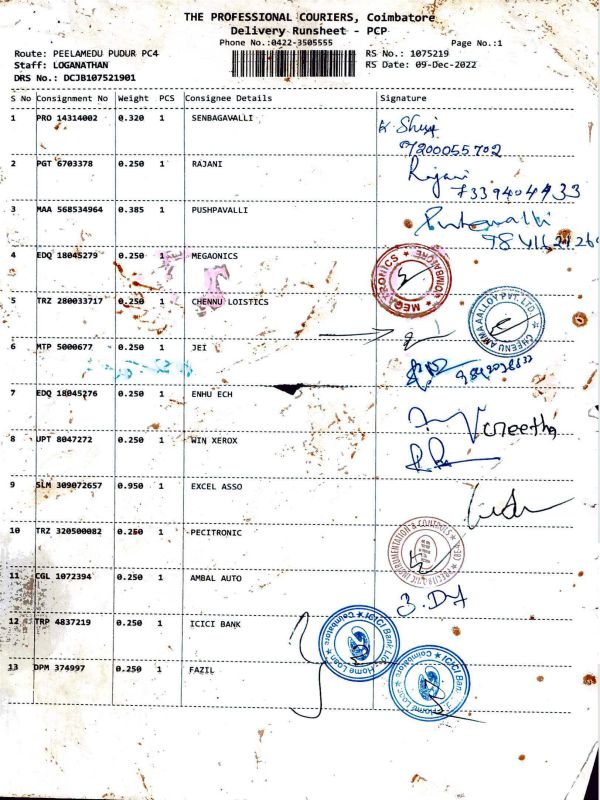 THE PROFESSIONAL COURIERS, Coimbatore
Delivery Runsheet - PCP
Phone No.:0422-3505555
Page No.:1
Route: PEELAMEDU PUDUR PC4
RS No.: 1075219
Staff: LOGANATHAN
RS Date: 09-Dec-2022
DRS No.: DCJB107521901
S No Consignment No Weight PCS Consignee Details Signature
1 PRO 14314002 0.320 1 SENBAGAVALLI
7200055702
2 PGT 6703378 0.250 1 RAJANI Rajani
7339404933
3 MAA 568534964 0.385 1 PUSHPAVALLI
4 EDQ 18045279 0.250 1 MEGAONICS
5 TRZ 280033717 0.250 1 CHENNU LOISTICS
6 MTP 5000677 0.250 1 JEI
7 EDQ 18045276 0.250 1 ENHU ECH
8 UPT 8047272 0.250 1 WIN XEROX
9 SLM 309072657 0.950 1 EXCEL ASSO
10 TRZ 320500082 0.250 1 PECITRONIC
11 CGL 1072394 0.250 1 AMBAL AUTO
12 TRP 4837219 0.250 1 ICICI BANK
ICICI Bank Ltd.
Home Loan
Coimbatore
13 DPM 374997 0.250 1 FAZIL
ICICI Bank Ltd.
Home Loan
Coimbatore